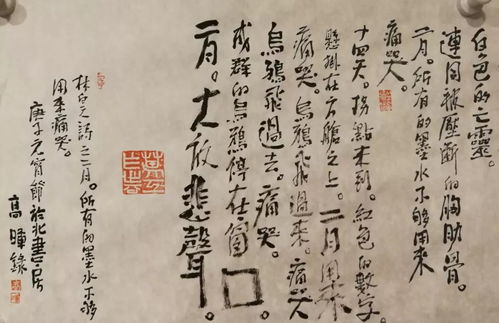 白色的亡靈。
連同被壓斷的胸肋骨。
二月。所有的墨水不够用來
痛哭。
十四天。拐點未到。紅色的數字
懸掛在方艙之上。二月用來
痛哭。烏鴉飛過來。痛哭
烏鴉飛過去。痛哭。
成群的烏鴉停在窗口
二月。大放悲聲。
林白之詩之二月。所有的墨水不够
用來痛哭。
庚子元宵節於北書房
高暉錄